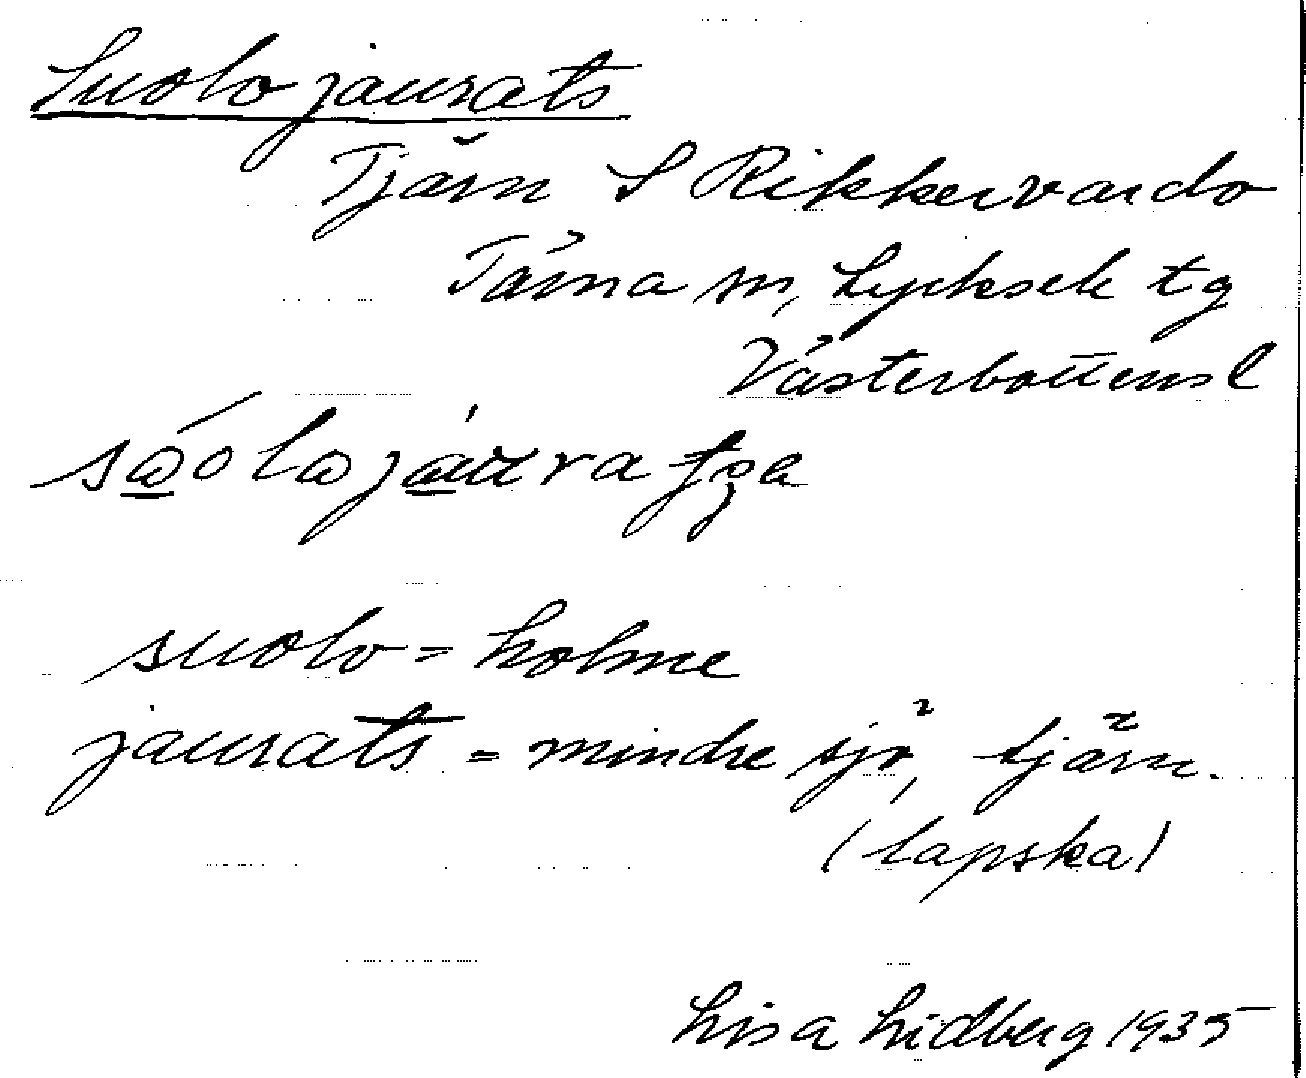 Suolojaurats
Tjärn S Rikkervardo
Tärna sn, Lycksele tg
Västerbottens l
suolo = holme
jaurats = mindre sjö, tjärn.
(lapska)
Lisa Lidberg 1935